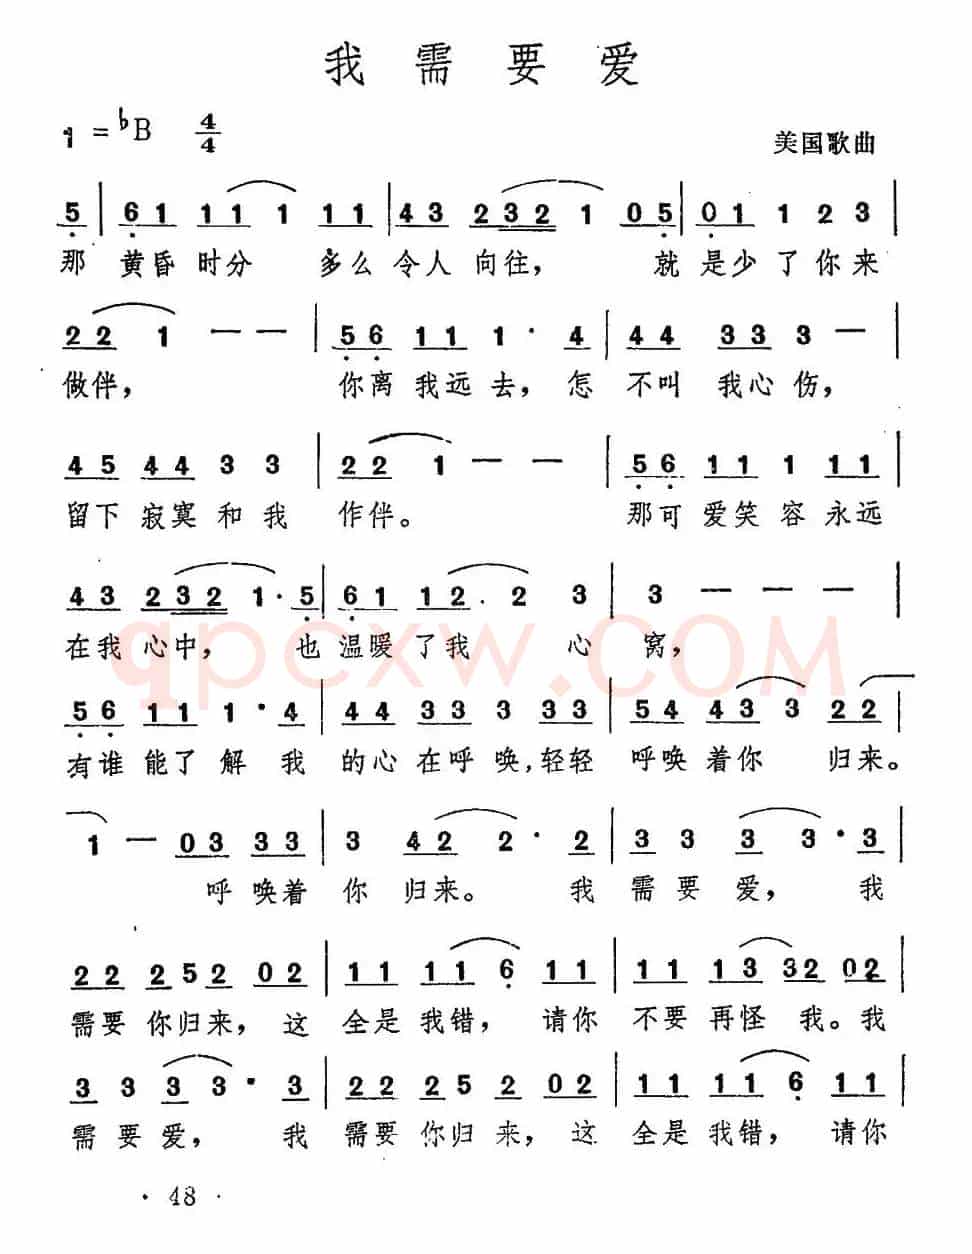 我需要爱
1 = ♭B 4/4
美国歌曲
5 | 6 1 1 1 1 1 1 | 4 3 2 3 2 1 0 5 | 0 1 1 2 3 |
那 黄昏 时分 多么 令人 向往， 就 是少 了 你 来
2 2 1 — — | 5 6 1 1 1 · 4 | 4 4 3 3 3 — |
做伴， 你离 我远 去， 怎 不叫 我心 伤，
4 5 4 4 3 3 | 2 2 1 — — | 5 6 1 1 1 1 1 |
留下 寂寞 和 我 作伴。 那可 爱笑 容 永远
4 3 2 3 2 1 · 5 | 6 1 1 2 · 2 3 | 3 — — — |
在我 心中， 也 温暖 了我 心 窝，
5 6 1 1 1 · 4 | 4 4 3 3 3 3 3 | 5 4 4 3 3 2 2 |
有谁 能了 解 我 的心 在呼 唤，轻轻 呼唤 着你 归来。
1 — 0 3 3 3 | 3 4 2 2 · 2 | 3 3 3 3 · 3 |
呼 唤着 你 归来。 我 需 要 爱， 我
2 2 2 5 2 0 2 | 1 1 1 1 6 1 1 | 1 1 1 3 3 2 0 2 |
需要 你归 来， 这 全是 我错， 请你 不要 再怪 我。我
3 3 3 3 · 3 | 2 2 2 5 2 0 2 | 1 1 1 1 6 1 1 |
需 要 爱， 我 需要 你归 来， 这 全是 我错， 请你
· 48 ·
qpcxw.COM